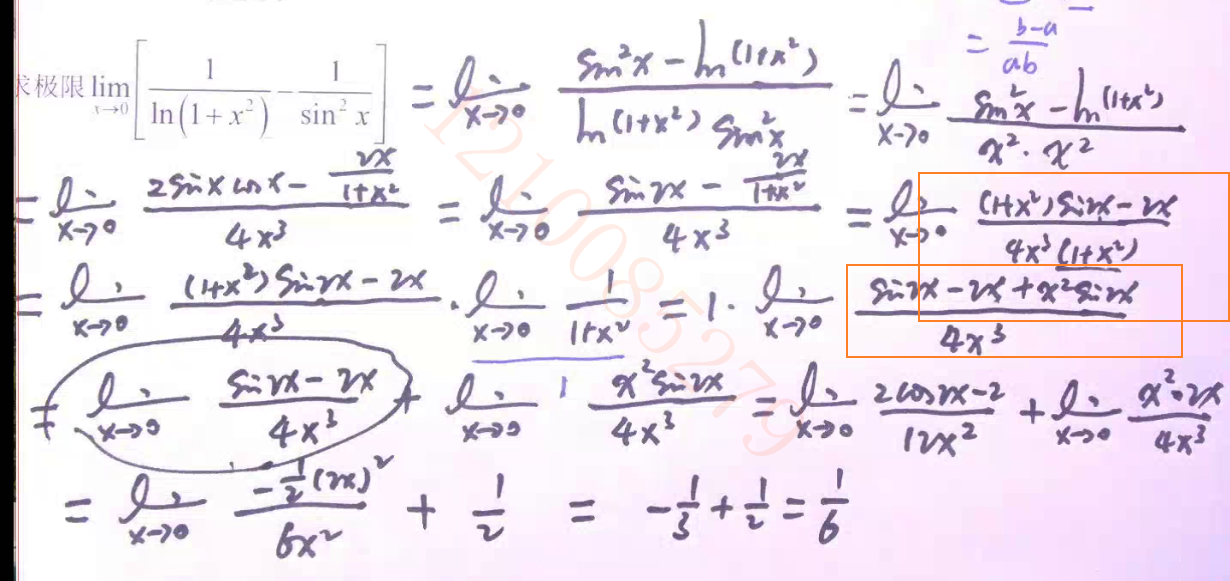 = (b-a)/(ab)
求极限 lim_{x→0} [ 1/ln(1+x²) - 1/sin² x ] = lim_{x→0} (sin²x - ln(1+x²))/(ln(1+x²) sin²x) = lim_{x→0} (sin²x - ln(1+x²))/(x²·x²)
= lim_{x→0} (2sinx cosx - 2x/(1+x²))/(4x³) = lim_{x→0} (sin2x - 2x/(1+x²))/(4x³) = lim_{x→0} ((1+x²)sin2x - 2x)/(4x³(1+x²))
= lim_{x→0} ((1+x²)sin2x - 2x)/(4x³) · lim_{x→0} 1/(1+x²) = 1 · lim_{x→0} (sin2x - 2x + x²sin2x)/(4x³)
1
= lim_{x→0} (sin2x - 2x)/(4x³) + lim_{x→0} (x²sin2x)/(4x³) = lim_{x→0} (2cos2x - 2)/(12x²) + lim_{x→0} (x²·2x)/(4x³)
= lim_{x→0} (-1/2 (2x)²)/(6x²) + 1/2 = -1/3 + 1/2 = 1/6
1210085279